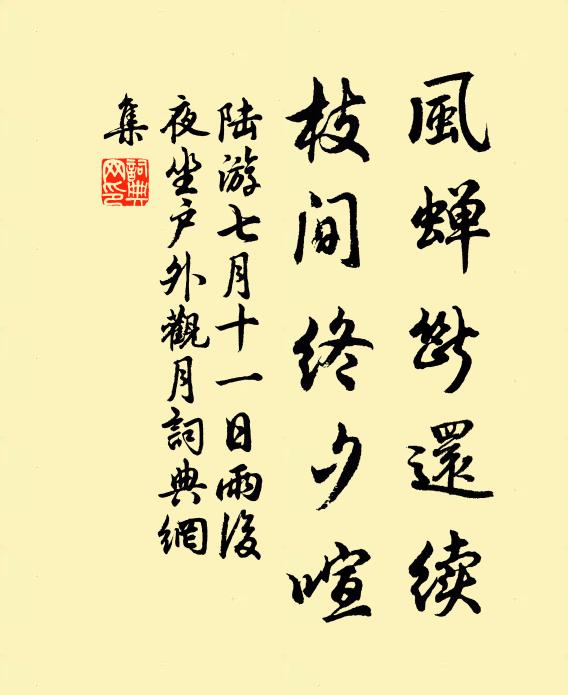 風蝉斷還續
枝间终夕喧
陆游七月十一日雨後
夜坐户外觀月詞典網
集
詞典
网印